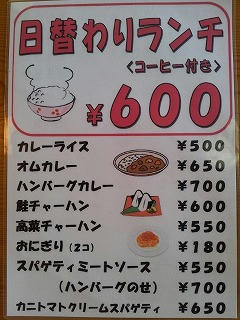 日替わりランチ
<コーヒー付き>
¥600
カレーライス ¥500
オムカレー ¥650
ハンバーグカレー ¥700
鮭チャーハン ¥600
高菜チャーハン ¥550
おにぎり(2コ) ¥180
スパゲティミートソース ¥550
(ハンバーグのせ) ¥700
カニトマトクリームスパゲティ ¥650